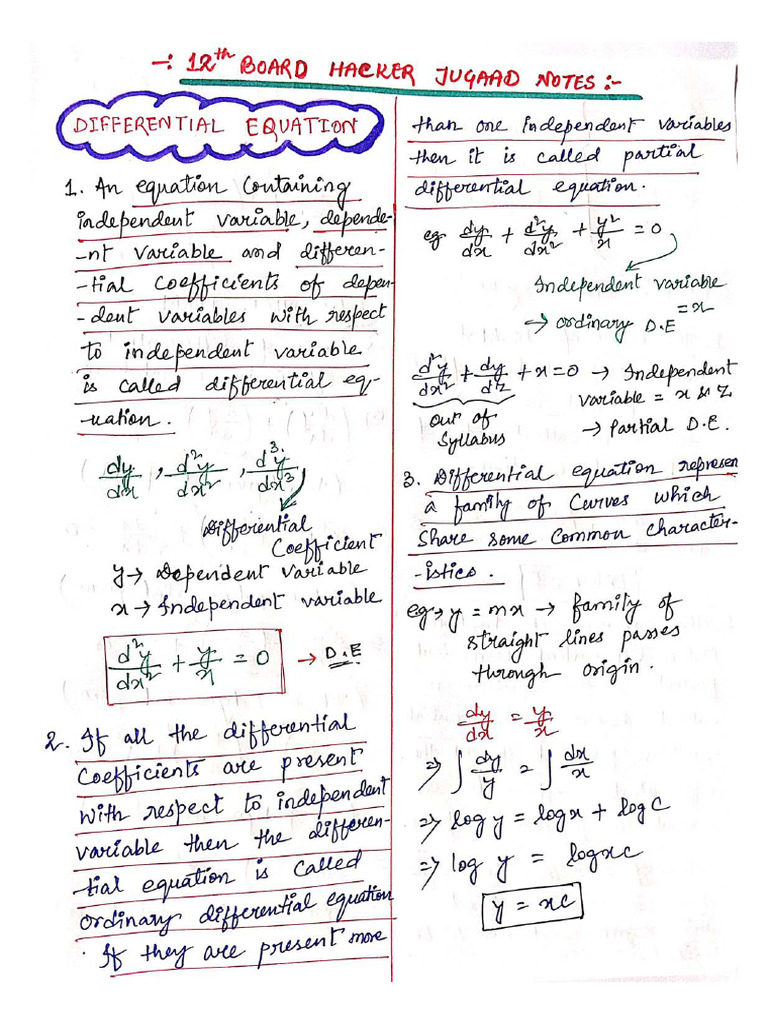 -: 12th BOARD HACKER JUGAAD NOTES :-
DIFFERENTIAL EQUATION
1. An equation Containing
independent variable, depende-
-nt variable and differen-
-tial coefficients of depen-
-dent variables with respect
to independent variable
is called differential eq-
-uation.
dy/dx , d²y/dx² , d³y/dx³
Differential
Coefficient
y → Dependent variable
x → Independent variable
d²y/dx² + y/x = 0 → D.E
2. If all the differential
Coefficients are present
with respect to independent
variable then the differen-
-tial equation is called
ordinary differential equation
. If they are present more
than one independent variables
then it is called partial
differential equation.
eg dy/dx + d²y/dx² + y²/x = 0
Independent variable
= x
→ ordinary D.E
d²y/dx² + dy/dz + x = 0 → Independent
variable = x & z
out of
Syllabus
→ Partial D.E.
3. Differential equation represen
a family of Curves which
Share some Common character-
-istics.
eg → y = mx → family of
straight lines passes
through origin.
dy/dx = y/x
⇒ ∫ dy/y = ∫ dx/x
⇒ log y = log x + log C
⇒ log y = log xc
y = xc